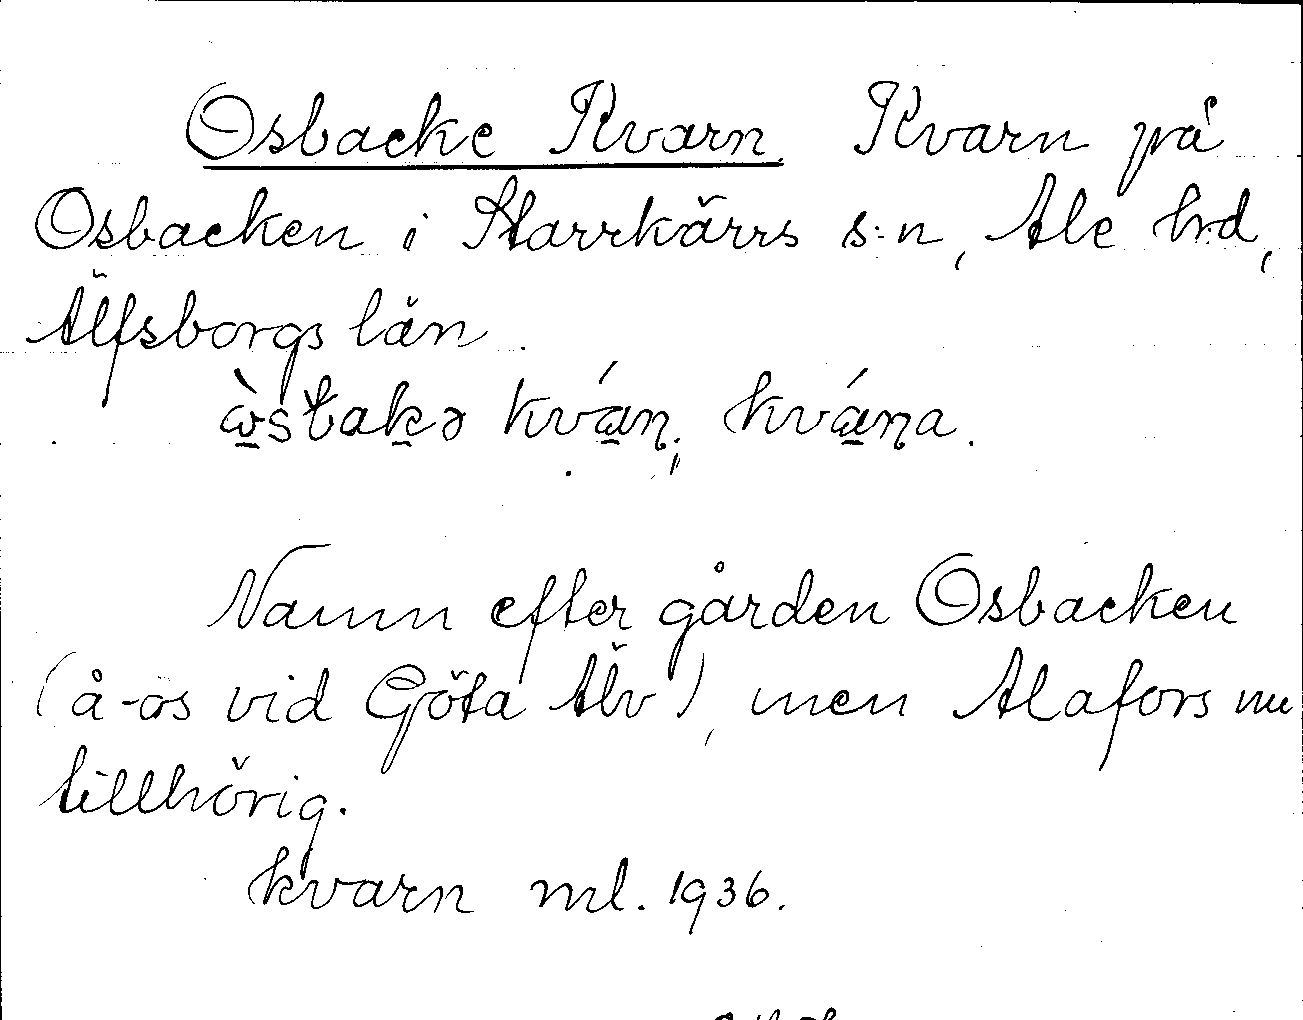 Osbacke Kvarn. Kvarn på
Osbacken i Starrkärrs s:n, Ale hrd,
Älfsborgs län.
kván, kvána.
Namn efter gården Osbacken
(å-os vid Göta Älv), men Alafors nu
tillhörig.
kvarn ml. 1936.